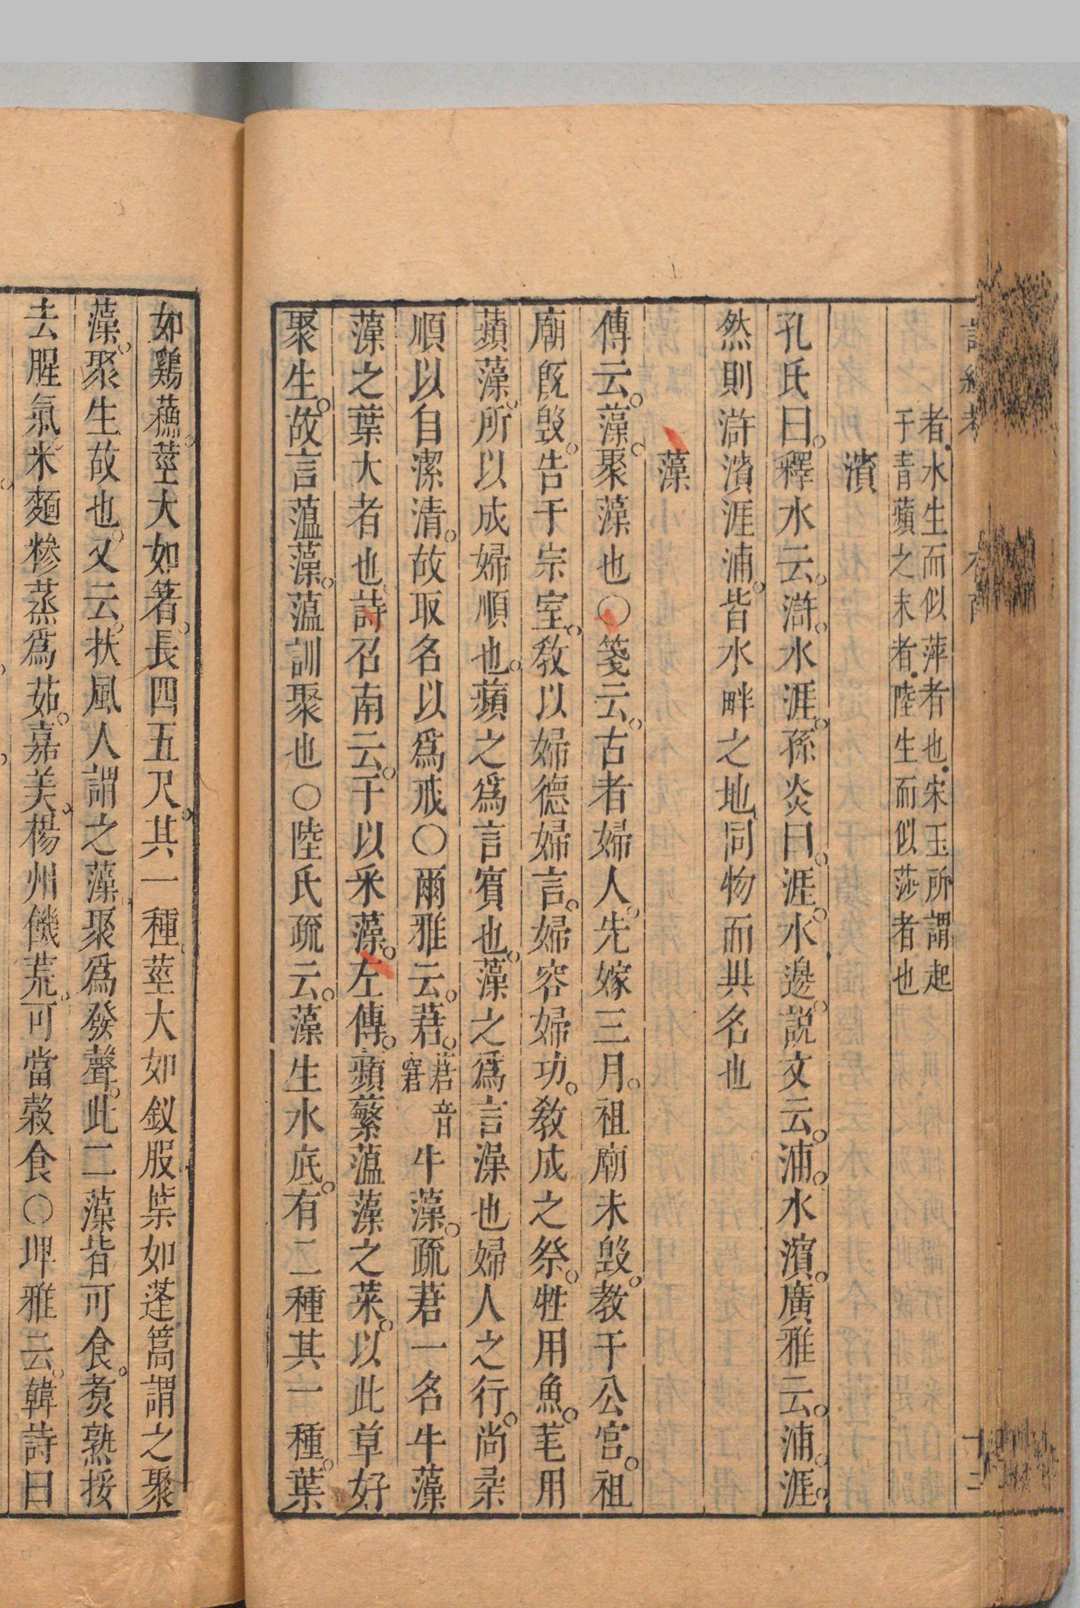 者水生而似萍者也宋玉所謂起
于青蘋之末者陸生而似莎者也
濱
孔氏曰。釋水云。滸。水涯。孫炎曰。涯。水邊。說文云。浦。水濱。廣雅云。浦。涯。
然則滸濱涯浦。皆水畔之地同物而異名也
藻
傳云。藻。聚藻也○箋云。古者婦人。先嫁三月。祖廟未毀。教于公宮。祖
廟既毀。告于宗室。教以婦德婦言。婦容婦功。教成之祭。牲用魚。芼用
蘋藻。所以成婦順也。蘋之爲言賓也。藻之爲言澡也婦人之行。尚柔
順以自潔清。故取名以爲戒○爾雅云。莙。莙音窘牛藻。疏莙一名牛藻
藻之葉大者也詩召南云。于以采藻。左傳。蘋蘩薀藻之菜。以此草好
聚生。故言薀藻。薀訓聚也○陸氏疏云。藻生水底。有二種其一種。葉
如鷄蘇。莖大如箸。長四五尺。其一種。莖大如釵股葉如蓬蒿謂之聚
藻。聚生故也。又云。扶風人謂之藻聚爲發聲。此二藻皆可食。煑熟挼
去腥氣米麵糝蒸爲茹。嘉美。楊州饑荒。可當穀食○埤雅云。韓詩曰